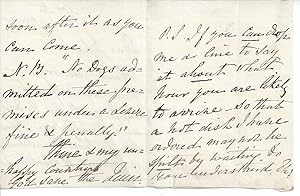 soon after it as you
can come.
N.B. "No Dogs ad-
mitted on these pre-
mises under a severe
fine & penalty."
Thine & my un-
happy country
God save the Queen
P.S. If you can drop
me a line to say
at about what
hour you are likely
to arrive. So that
a hot dish I have
ordered may not be
spoilt by waiting. Do
you understand